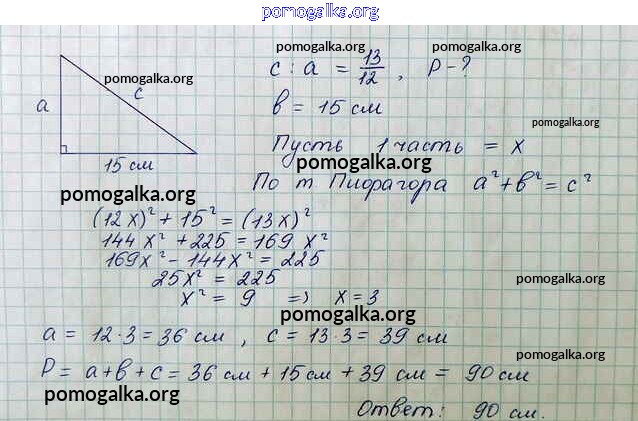 pomogalka.org
pomogalka.org
pomogalka.org
c : a = 13/12 , P - ?
pomogalka.org
a
c
b = 15 см
pomogalka.org
Пусть 1 часть = x
15 см
pomogalka.org
По т Пифагора a² + b² = c²
pomogalka.org
(12x)² + 15² = (13x)²
144 x² + 225 = 169 x²
169x² - 144x² = 225
25x² = 225
pomogalka.org
x² = 9 => x = 3
pomogalka.org
a = 12 · 3 = 36 см , c = 13 · 3 = 39 см
pomogalka.org
P = a + b + c = 36 см + 15 см + 39 см = 90 см
pomogalka.org
Ответ: 90 см.